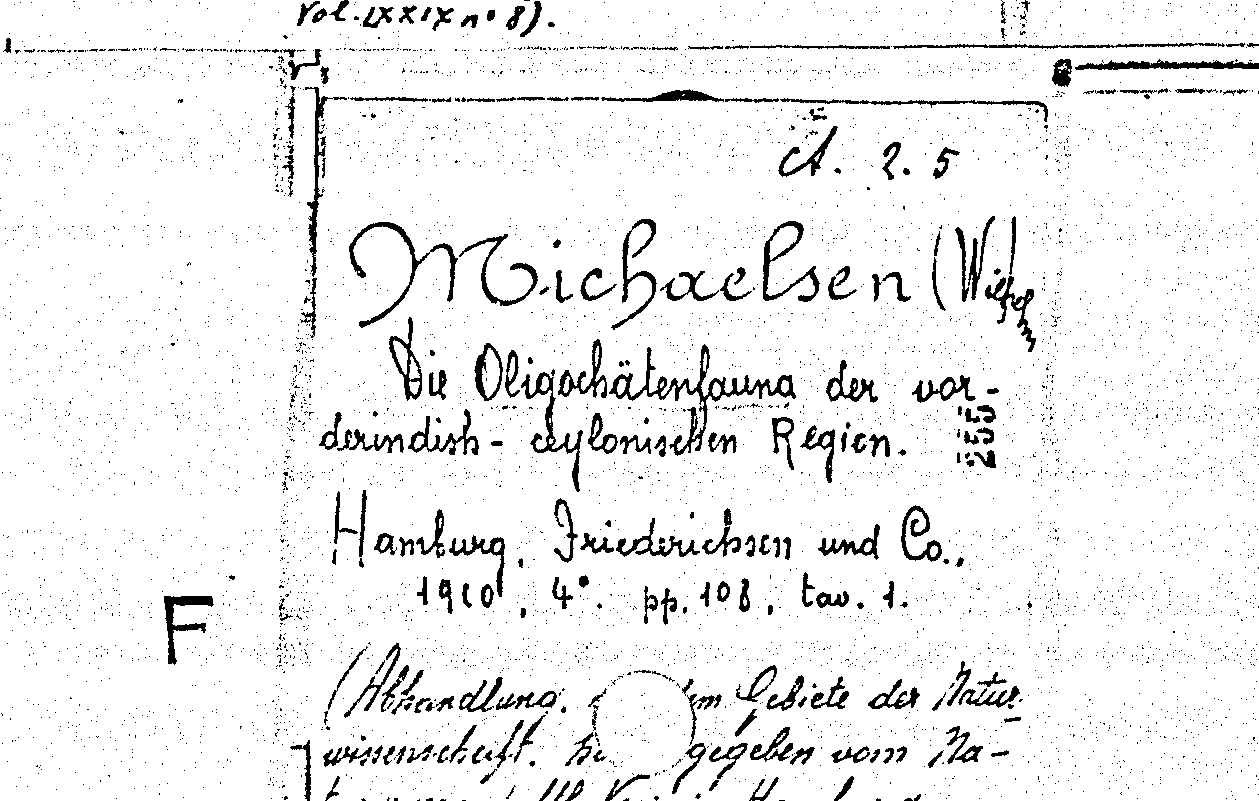 Vol. LXXIX n° 8).
A. 2. 5
Michaelsen (Wilhelm
Die Oligochätenfauna der vor-
derindish-ceylonischen Region.
255
Hamburg, Friederichsen und Co.,
1910, 4°. pp. 108, tav. 1.
F
(Abhandlung. dem Gebiete der Natur-
wissenschaft. gegeben vom Na-